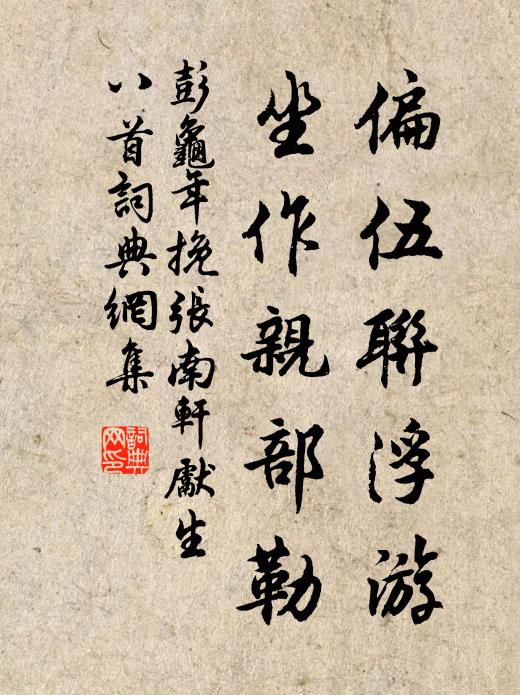 偏伍聯浮游
坐作親部勒
彭龜年挽張南軒獻生
八首詞典網集
詞典
网印